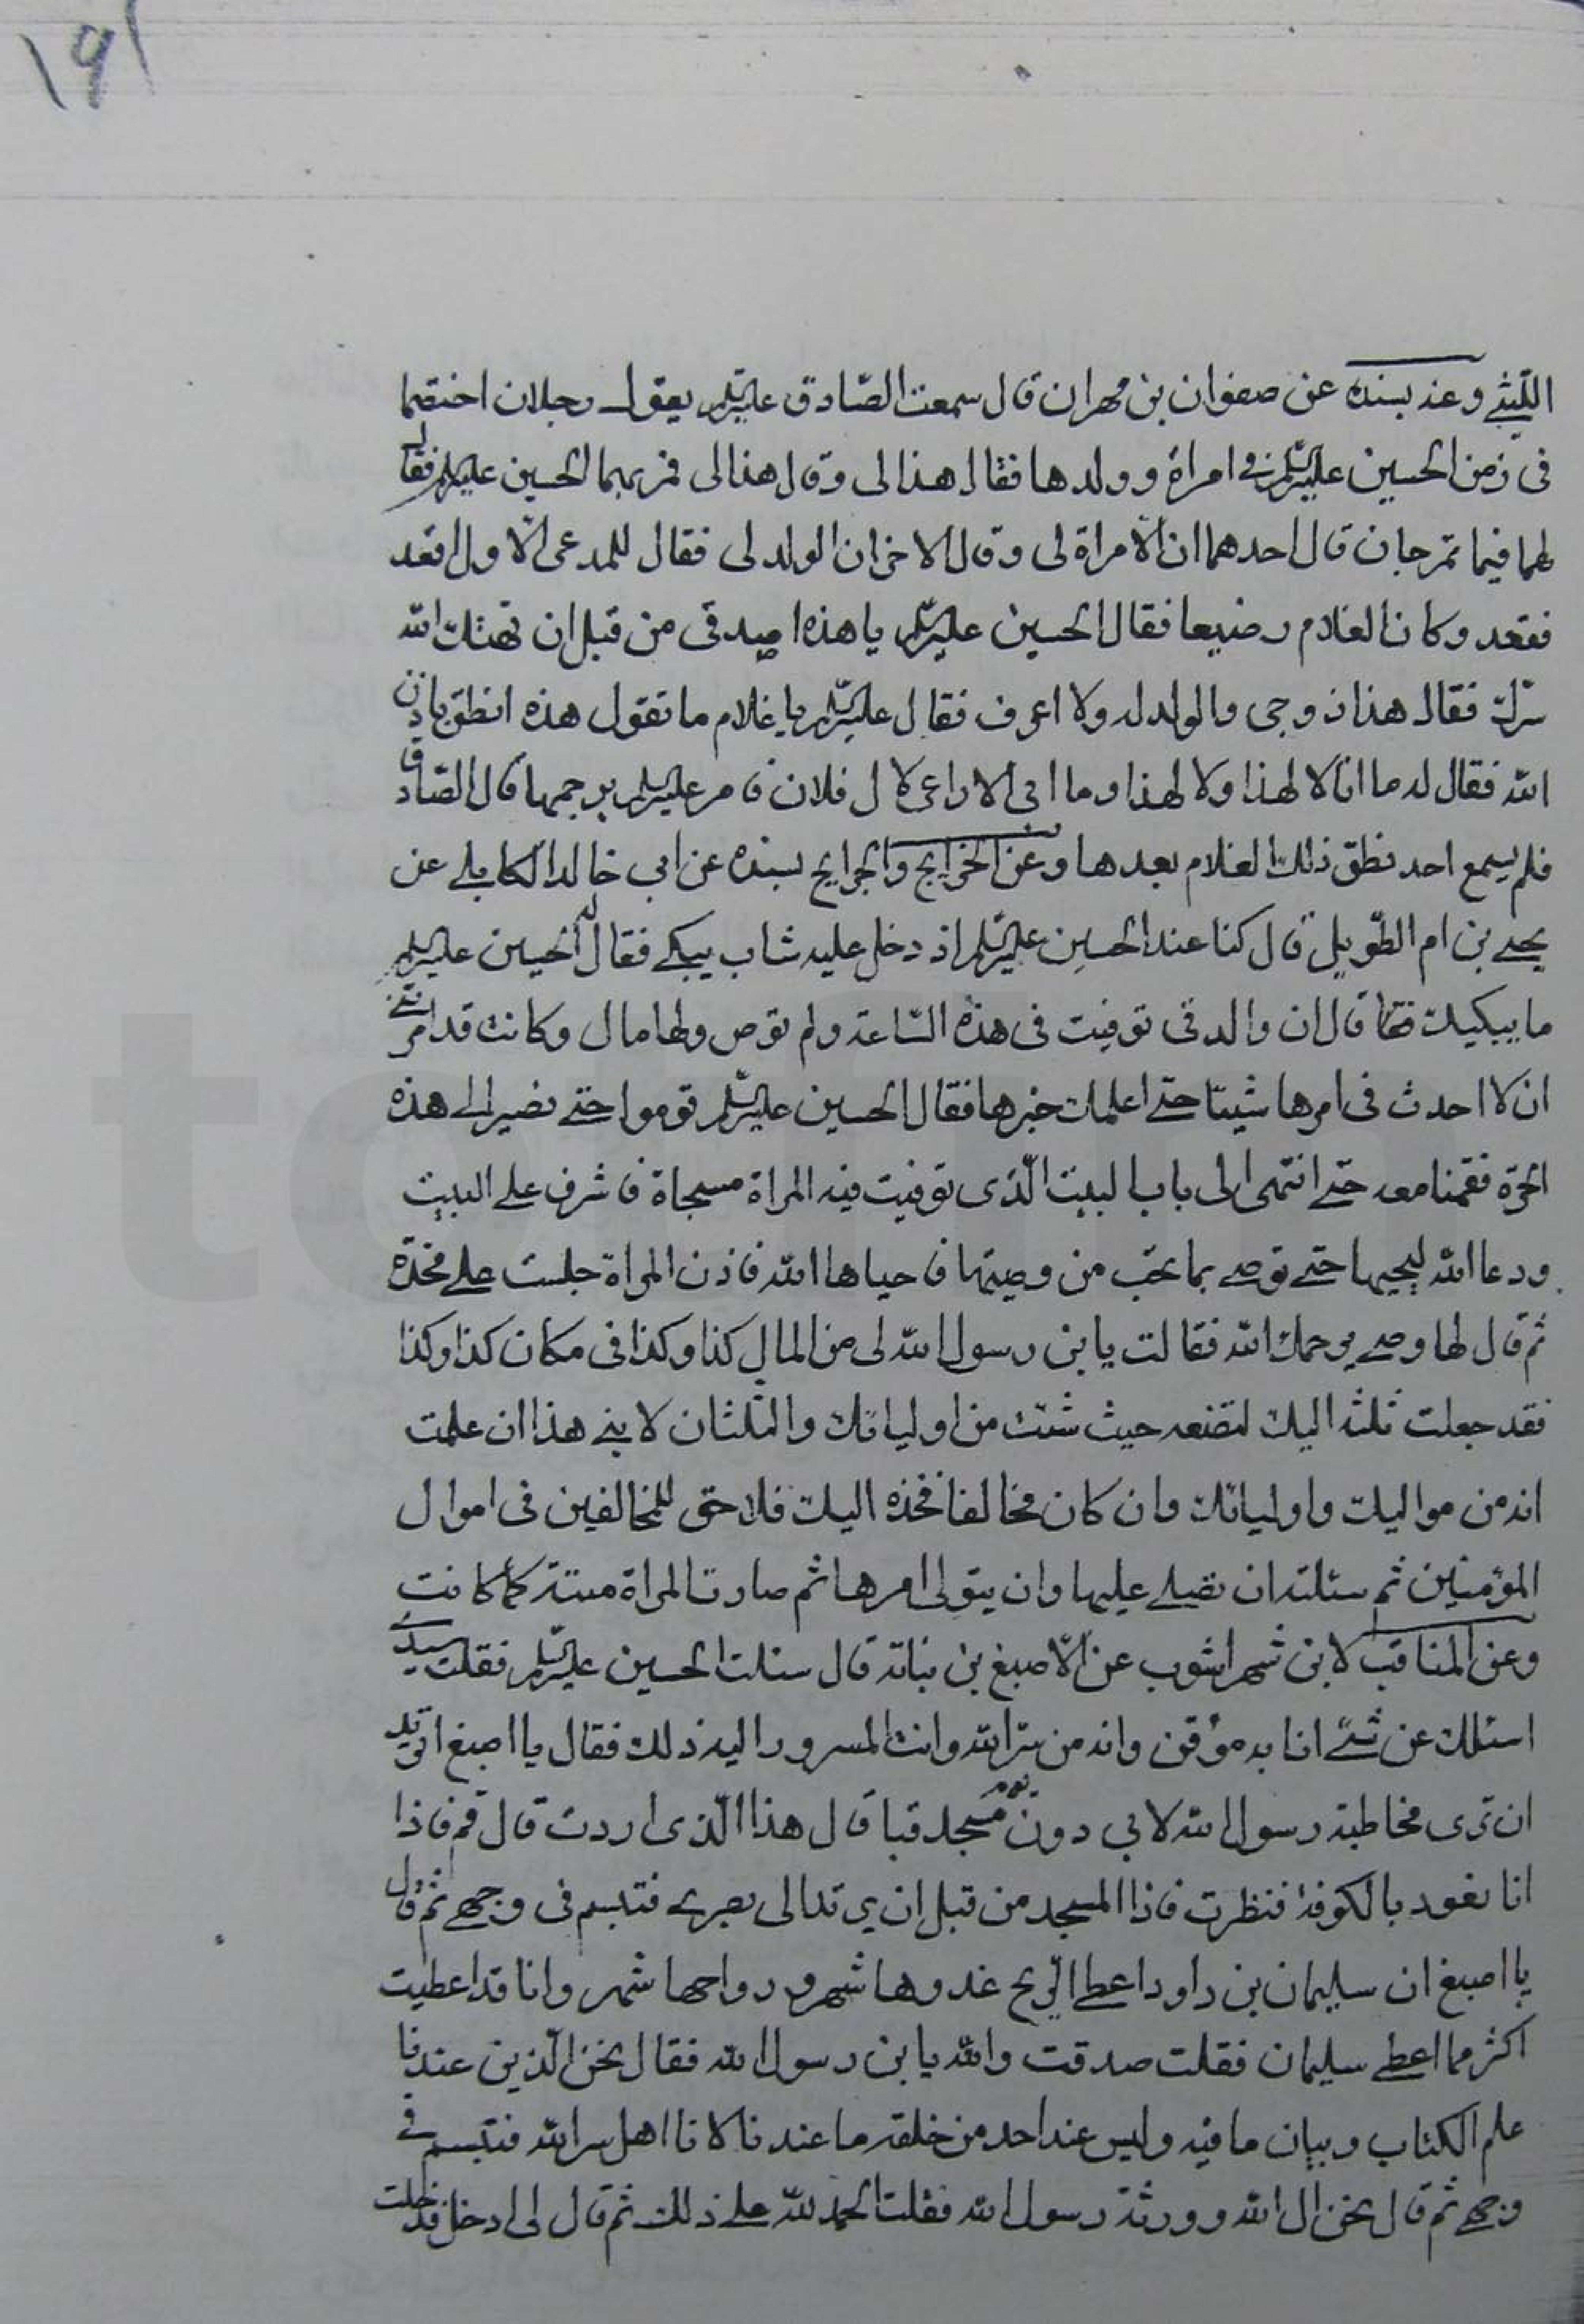 ١٩١
الليثى وعنه بسنده عن صفوان بن مهران قال سمعت الصّادق عليه السّلم يقول رجلان اختصما
فى زمن الحسين عليه السّلم فى امراة وولدها فقال هذا لى وقال هذا لى فمر بهما الحسين عليه السلم فقال
لهما فيما تمرجان قال احدهما ان الامراة لى وقال الاخر ان الولد لى فقال للمدعى الاول اقعد
فقعد وكان الغلام رضيعا فقال الحسين عليه السّلم يا هذه اصدقى من قبل ان يهتك الله
سرّك فقال هذا زوجى والولد له ولا اعرف فقال عليه السّلم يا غلام ما تقول هذه انطق باذن
الله فقال له ما انا لا لهذا ولا لهذا وما ابى الا راعى لال فلان فامر عليه السلم برجمها قال الصّادق
فلم يسمع احد نطق ذلك الغلام بعدها وعن الخرايج والجرايح بسنده عن ابى خالد الكابلى عن
يحيى بن ام الطّويل قال كنا عند الحسين عليه السّلم اذ دخل عليه شاب يبكى فقال له الحسين عليه السلم
ما يبكيك فقال ان والدتى توفيت فى هذه السّاعة ولم توص ولها مال وكانت قد امرتنى
ان لا احدث فى امرها شيئا حتى اعلمك خبرها فقال الحسين عليه السّلم قوموا حتى نصير الى هذه
الحرّة فقمنا معه حتى انتهى الى باب البيت الّذى توفيت فيه المراة مسجاة فاشرف على البيت
ودعا الله ليحييها حتى توصى بما تحب من وصيتها فاحياها الله فاذن المراة جلست على مخدّة
ثم قال لها وصى يرحمك الله فقالت يا بن رسول الله لى من المال كذا وكذا فى مكان كذا وكذا
فقد جعلت ثلثه اليك لتضعه حيث شئت من اوليائك والثلثان لابنى هذا ان علمت
انه من مواليك واوليائك وان كان مخالفا فخذه اليك فلا حق للمخالفين فى اموال
المؤمنين ثم سئلته ان يصلى عليها وان يتولى امرها ثم صارت المراة ميتة كما كانت
وعن المناقب لابن شهراشوب عن الاصبغ بن نباتة قال سئلت الحسين عليه السّلم فقلت سيدى
اسئلك عن شئ انا به موقن وانه من سرّ الله وانت المسرور اليه ذلك فقال يا اصبغ اتريد
ان ترى مخاطبة رسول الله لابى دون يوم مسجد قبا قال هذا الّذى اردت قال قم فاذا
انا بالكوفة فنظرت فاذا المسجد من قبل ان يرتد الى بصرى فتبسم فى وجهى ثم قال
يا اصبغ ان سليمان بن داود اعطى الرّيح غدوها شهر ورواحها شهر وانا قد اعطيت
اكثر مما اعطى سليمان فقلت صدقت والله يا بن رسول الله فقال نحن الّذين عندنا
علم الكتاب وبيان ما فيه وليس عند احد من خلقه ما عندنا لانا اهل سر الله فتبسم فى
وجهى ثم قال نحن ال الله وورثة رسول الله فقلت الحمد لله على ذلك ثم قال لى ادخل فدخلت